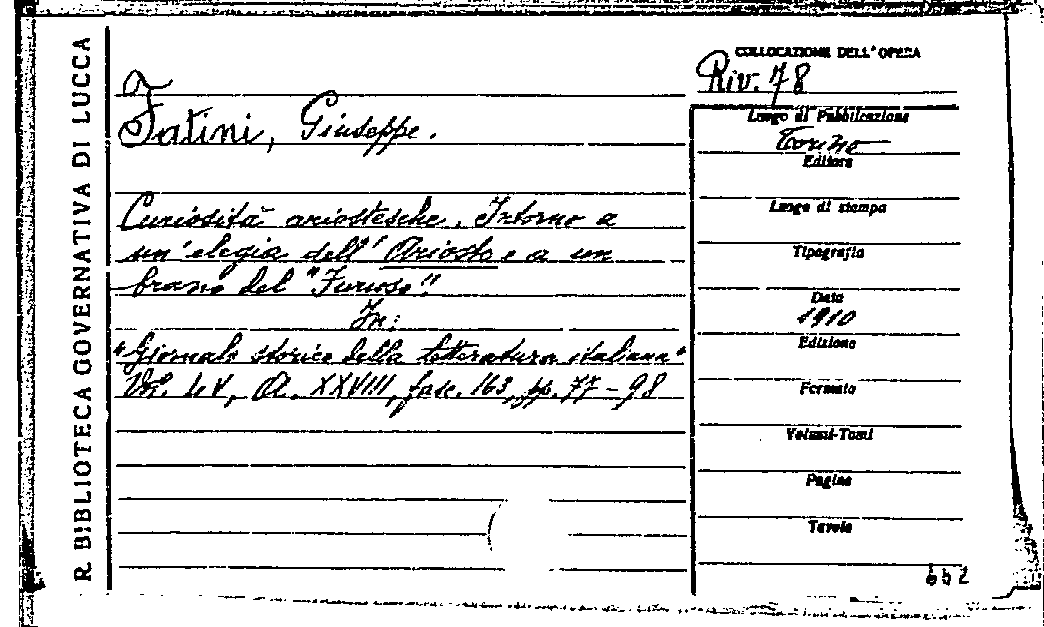 R. BIBLIOTECA GOVERNATIVA DI LUCCA
Fatini, Giuseppe.
Curiosità ariostesche. Intorno a
un'elegia dell'Ariosto e a un
brano del "Furioso".
In:
"Giornale storico della letteratura italiana"
Vol. LV, A. XXVIII, fasc. 163, pp. 77-98
COLLOCAZIONE DELL'OPERA
Riv. 78
Luogo di Pubblicazione
Torino
Editore
Luogo di stampa
Tipografia
Data
1910
Edizione
Formato
Volumi-Tomi
Pagine
Tavole
652